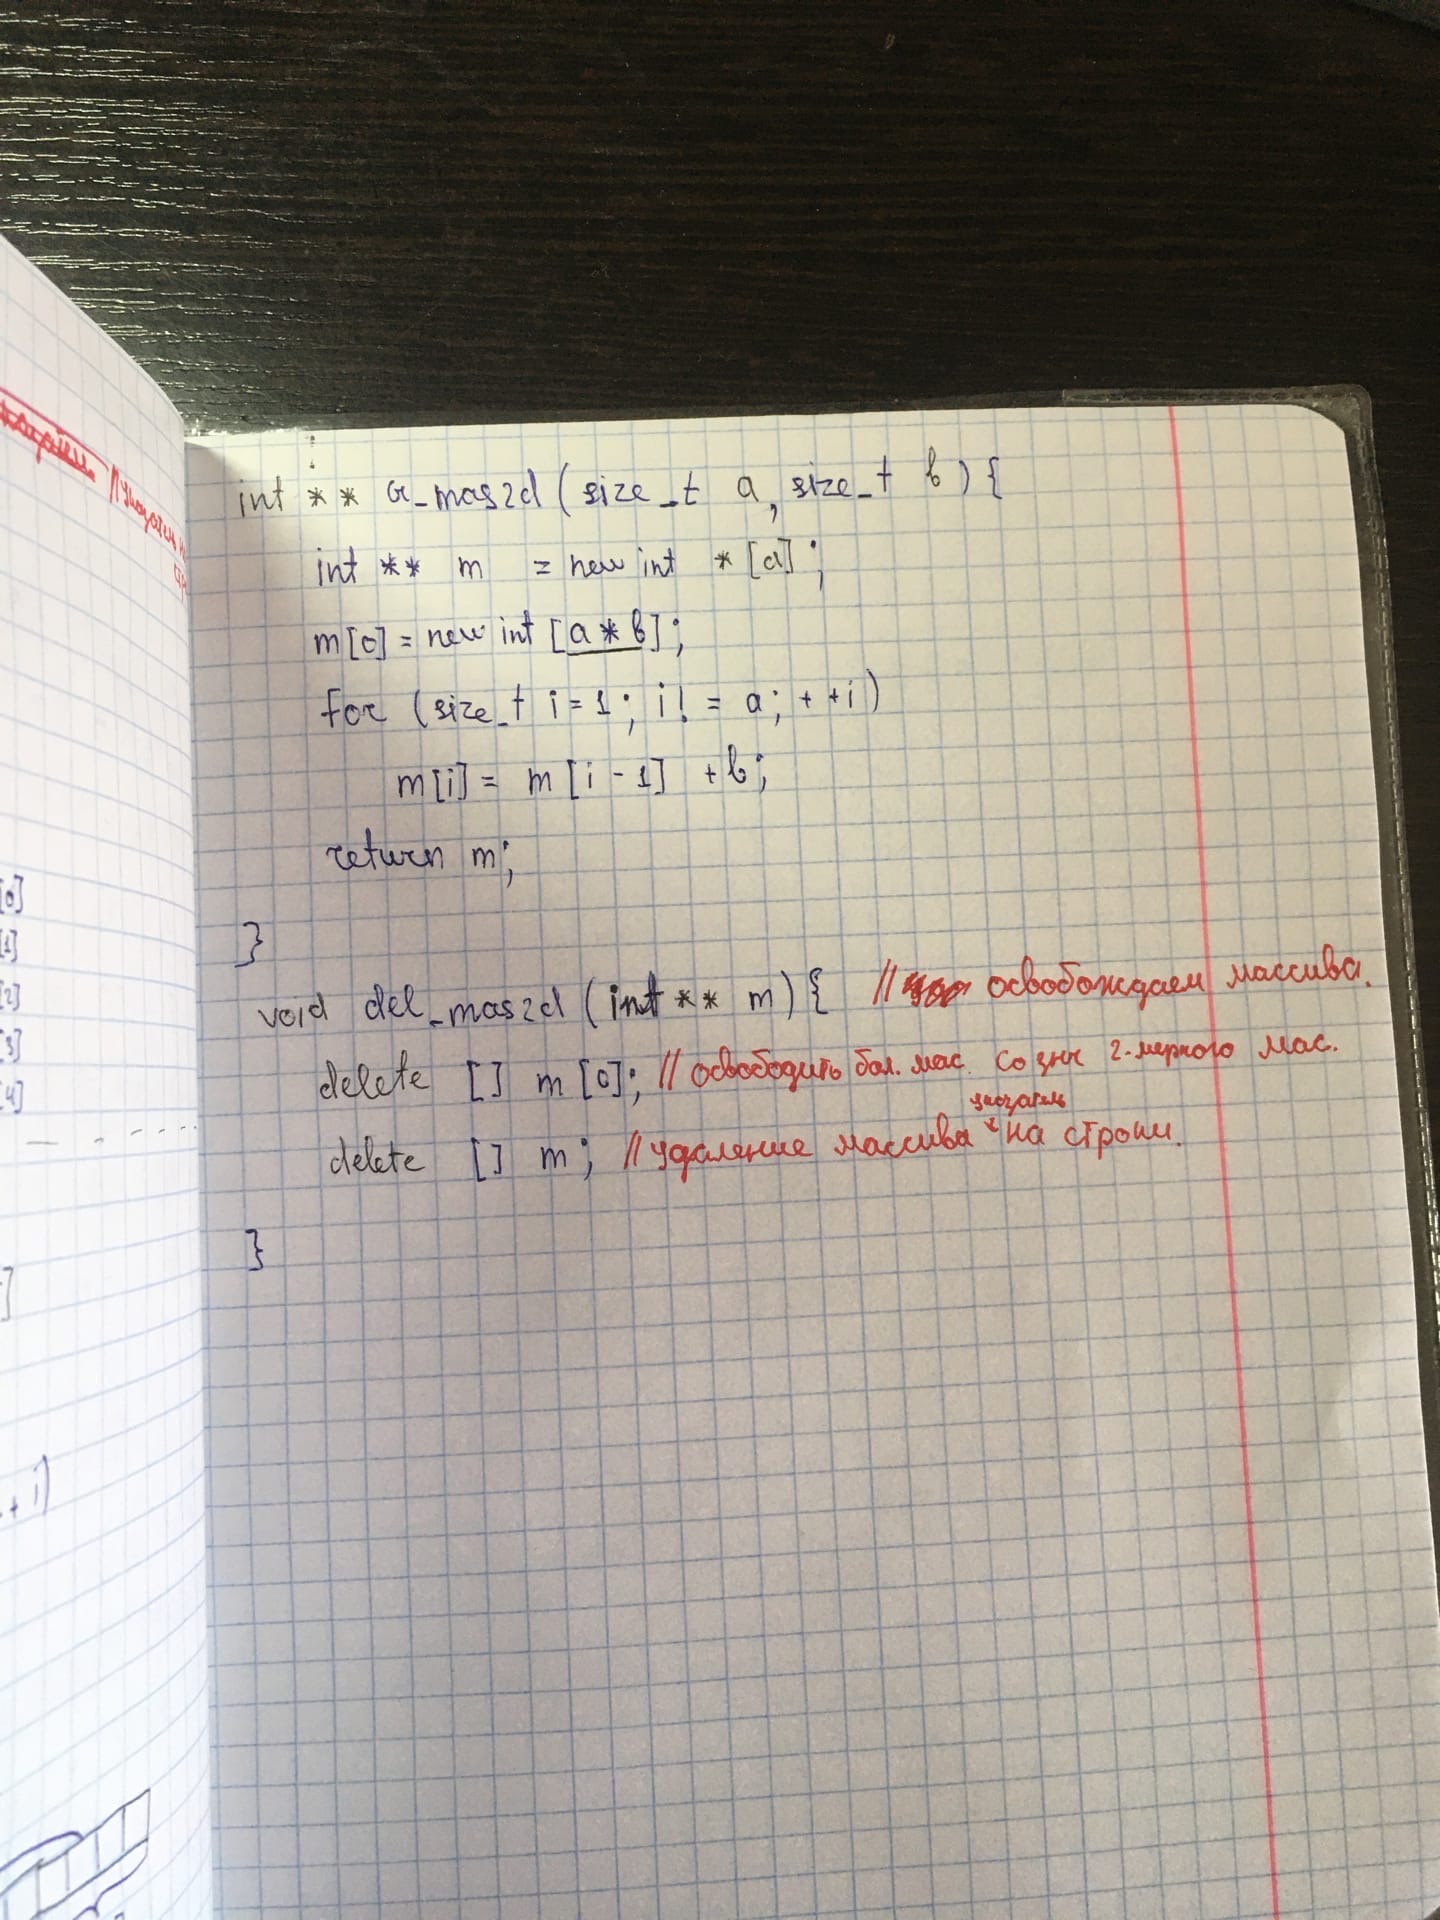 указатель на
стро
int ** a_mas2d (size_t a, size_t b) {
int ** m = new int * [a];
m[0] = new int [a * b];
for (size_t i = 1; i! = a; + +i)
m[i] = m [i - 1] + b;
return m;
}
void del_mas2d (int ** m) { // освобождаем массива.
delete [] m [0]; // освободить бол. мас. со знч 2-мерного мас.
указатель
delete [] m; // удаление массива на строки.
}
[0]
[1]
[2]
[3]
[4]
]
+ i)